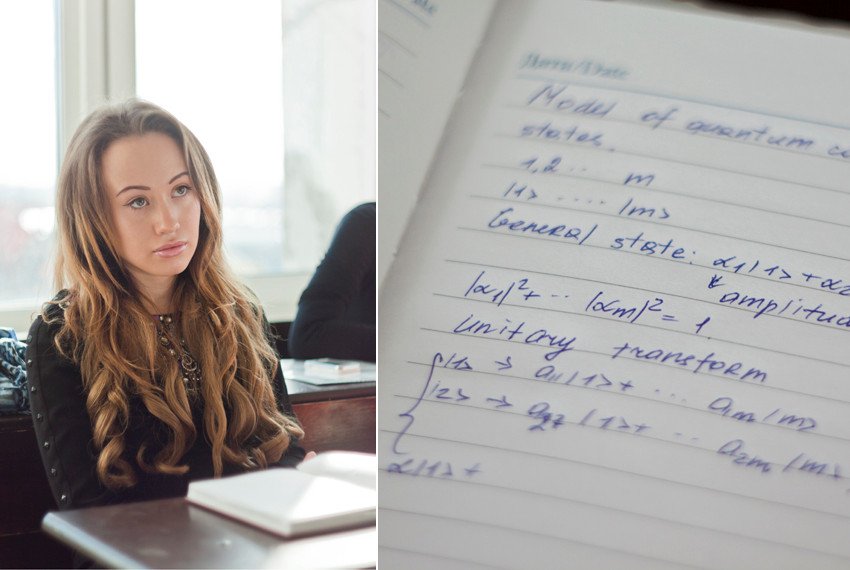 Model of quantum
states.
1,2.. m
|1> ..... |m>
General state: α1|1>+α2
amplitud
|α1|²+... |αm|²=1.
Unitary transform
|1> → a11|1>+ ... a1m|m>
|2> → |1>+ ... a2m|m>
α|1>+